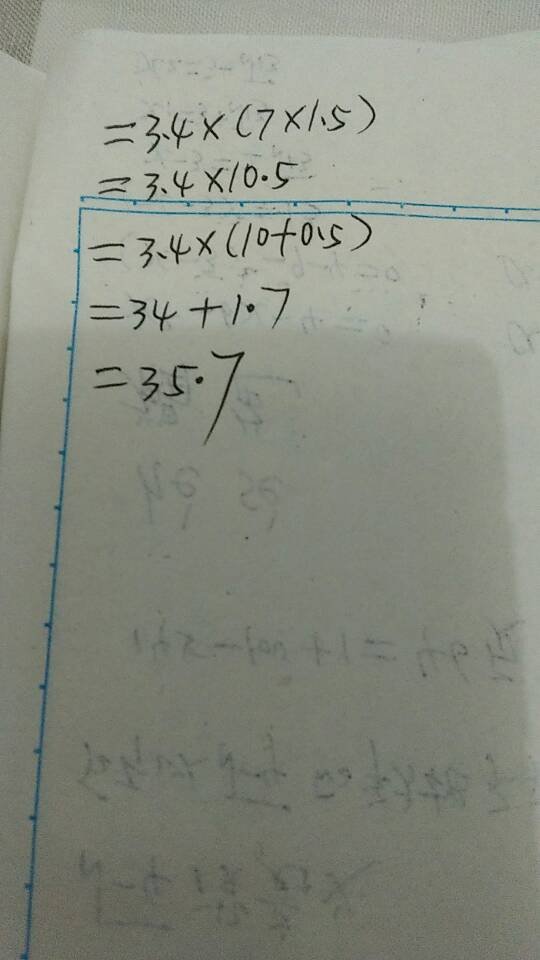 =3.4×(7×1.5)
=3.4×10.5
=3.4×(10+0.5)
=34+1.7
=35.7